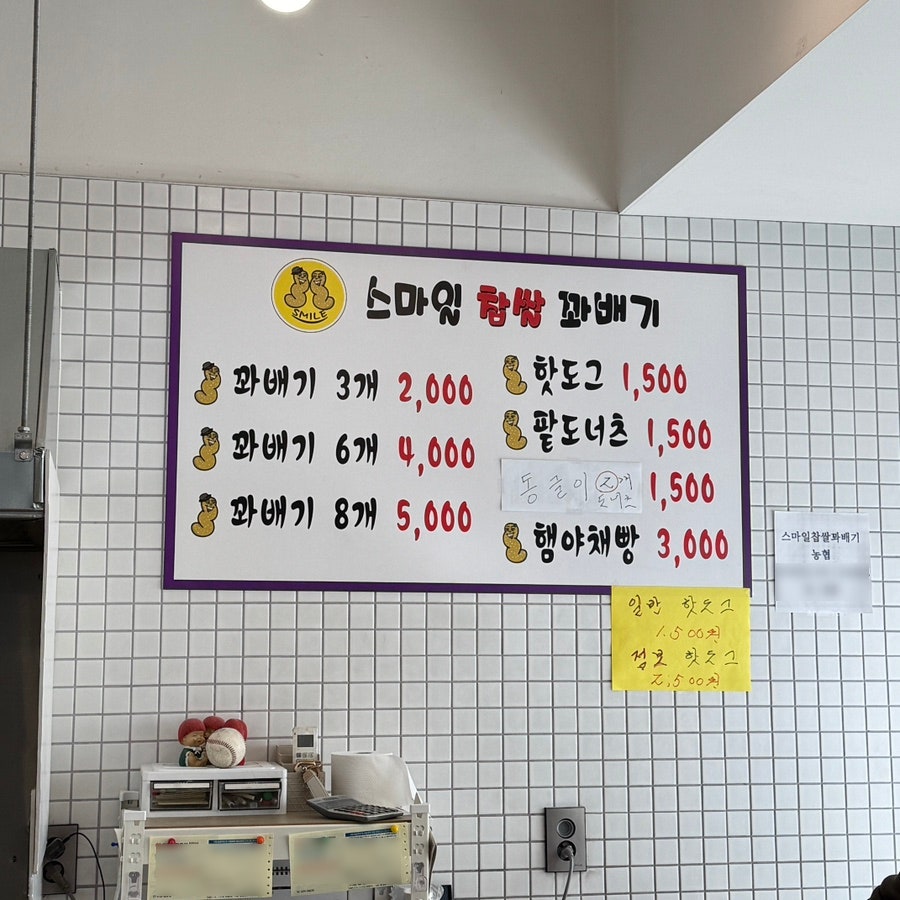 SMILE
스마일 찹쌀 꽈배기
꽈배기 3개 2,000
꽈배기 6개 4,000
꽈배기 8개 5,000
핫도그 1,500
팥도너츠 1,500
동글이 2개 도너츠 1,500
햄야채빵 3,000
일반 핫도그
1,500원
점보 핫도그
2,500원
스마일찹쌀꽈배기
농협